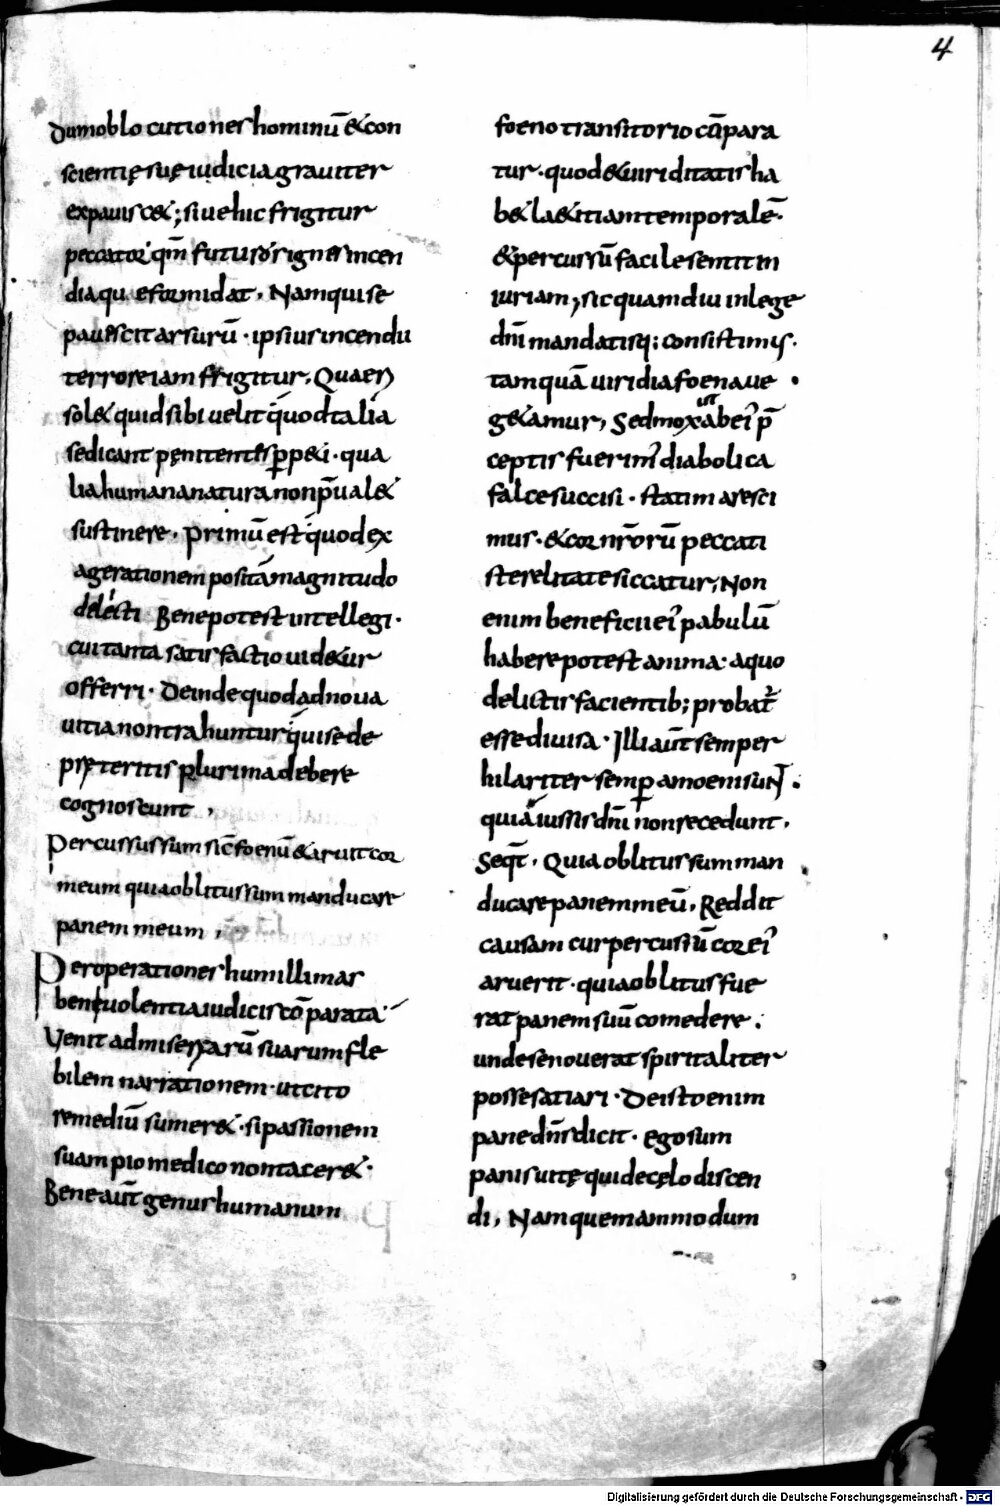 4
dum oblocutiones hominū & con
scientię suę iudicia grauiter
expauisc&; siue hic frigitur
peccator qm̄ futuros ignes incen
diaque formidat. Namqui se
pauescit arsurū · ipsius incendii
terrore iam frigitur, Quaeri
sol& quid sibi uelit quod talia
se dicant penitentes ꝑpeti · qua
lia humana natura non p̄ual&
sustinere. Primū est quod ex
ageratio nem posita magnitudo
delecti Bene potest intellegi ·
cui tanta satisfactio uid&ur
offerri · Deinde quod ad noua
uitia non trahuntur qui se de
pręteritis plurima debere
cognoscunt,
Percussus sum sic̄ foenū & aruit cor
meum quia oblitus sum manducare
panem meum,
Per operationes humillimas
beneuolentia iudicis cō parata ·
Venit ad miseriarū suarum fle
bilem narrationem · ut cito
remediū sumer& · si passionem
suam pio medico non tacer& ·
Bene aūt genus humanum
foeno transitorio cū para
tur · quod & uiriditatis ha
b& la&itiam temporalē ·
& percussū facile sentit in
iuriam; sic quamdiu in lege
dn̄i mandatisq; consistimus ·
tamquā uiridia foena ue ·
g&amur, Sed mox ut ab ei' p̄
ceptis fuerim' diabolica
falce succisi · statim aresci
mus · & cor nr̄orū peccati
sterelitate siccatur, Non
enim beneficii ei' pabulū
habere potest anima · a quo
delictis facientib; probat̄
esse diuisa · Illi aūt semper
hilariter semꝑ amoeni sunt ·
quia a iussis dn̄i non recedunt.
Seqt̄. Quia oblitus sum man
ducare panem meū, Reddit
causam cur percussū cor ei'
aruerit · quia oblitus fue
rat panem suū comedere ·
unde se nouerat spiritaliter
posse satiari · De isto enim
pane dn̄s dicit · ego sum
panis uitę qui de cęlo discen
di, Nam quemammodum
Digitalisierung gefördert durch die Deutsche Forschungsgemeinschaft - DFG